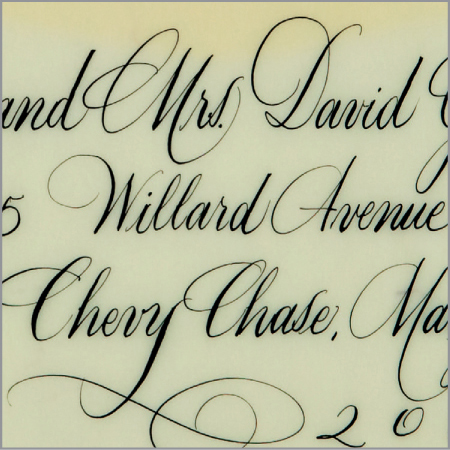 and Mrs. David
5 Willard Avenue
Chevy Chase, Ma
20